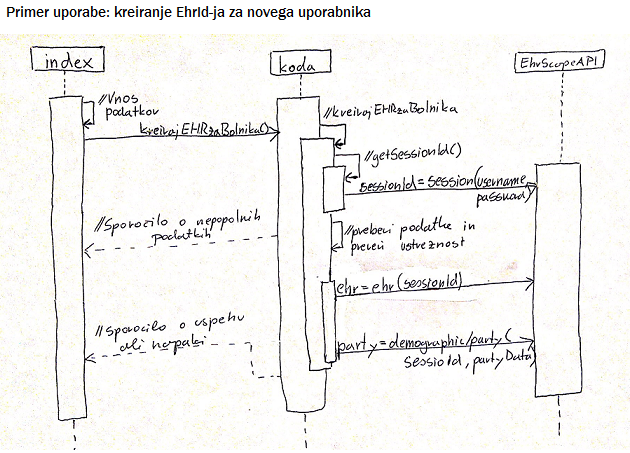 Primer uporabe: kreiranje EhrId-ja za novega uporabnika
index
koda
EhrScopeAPI
//Vnos
podatkov
kreirajEHRzaBolnika()
//kreirajEHRzaBolnika
//getSessionId()
sessionId=session(username,
password)
//Sporočilo o nepopolnih
podatkih
//preberi podatke in
preveri ustreznost
ehr=ehr(sessionId)
//Sporočilo o uspehu
ali napaki
party=demographic/party(
sessionId, partyData)